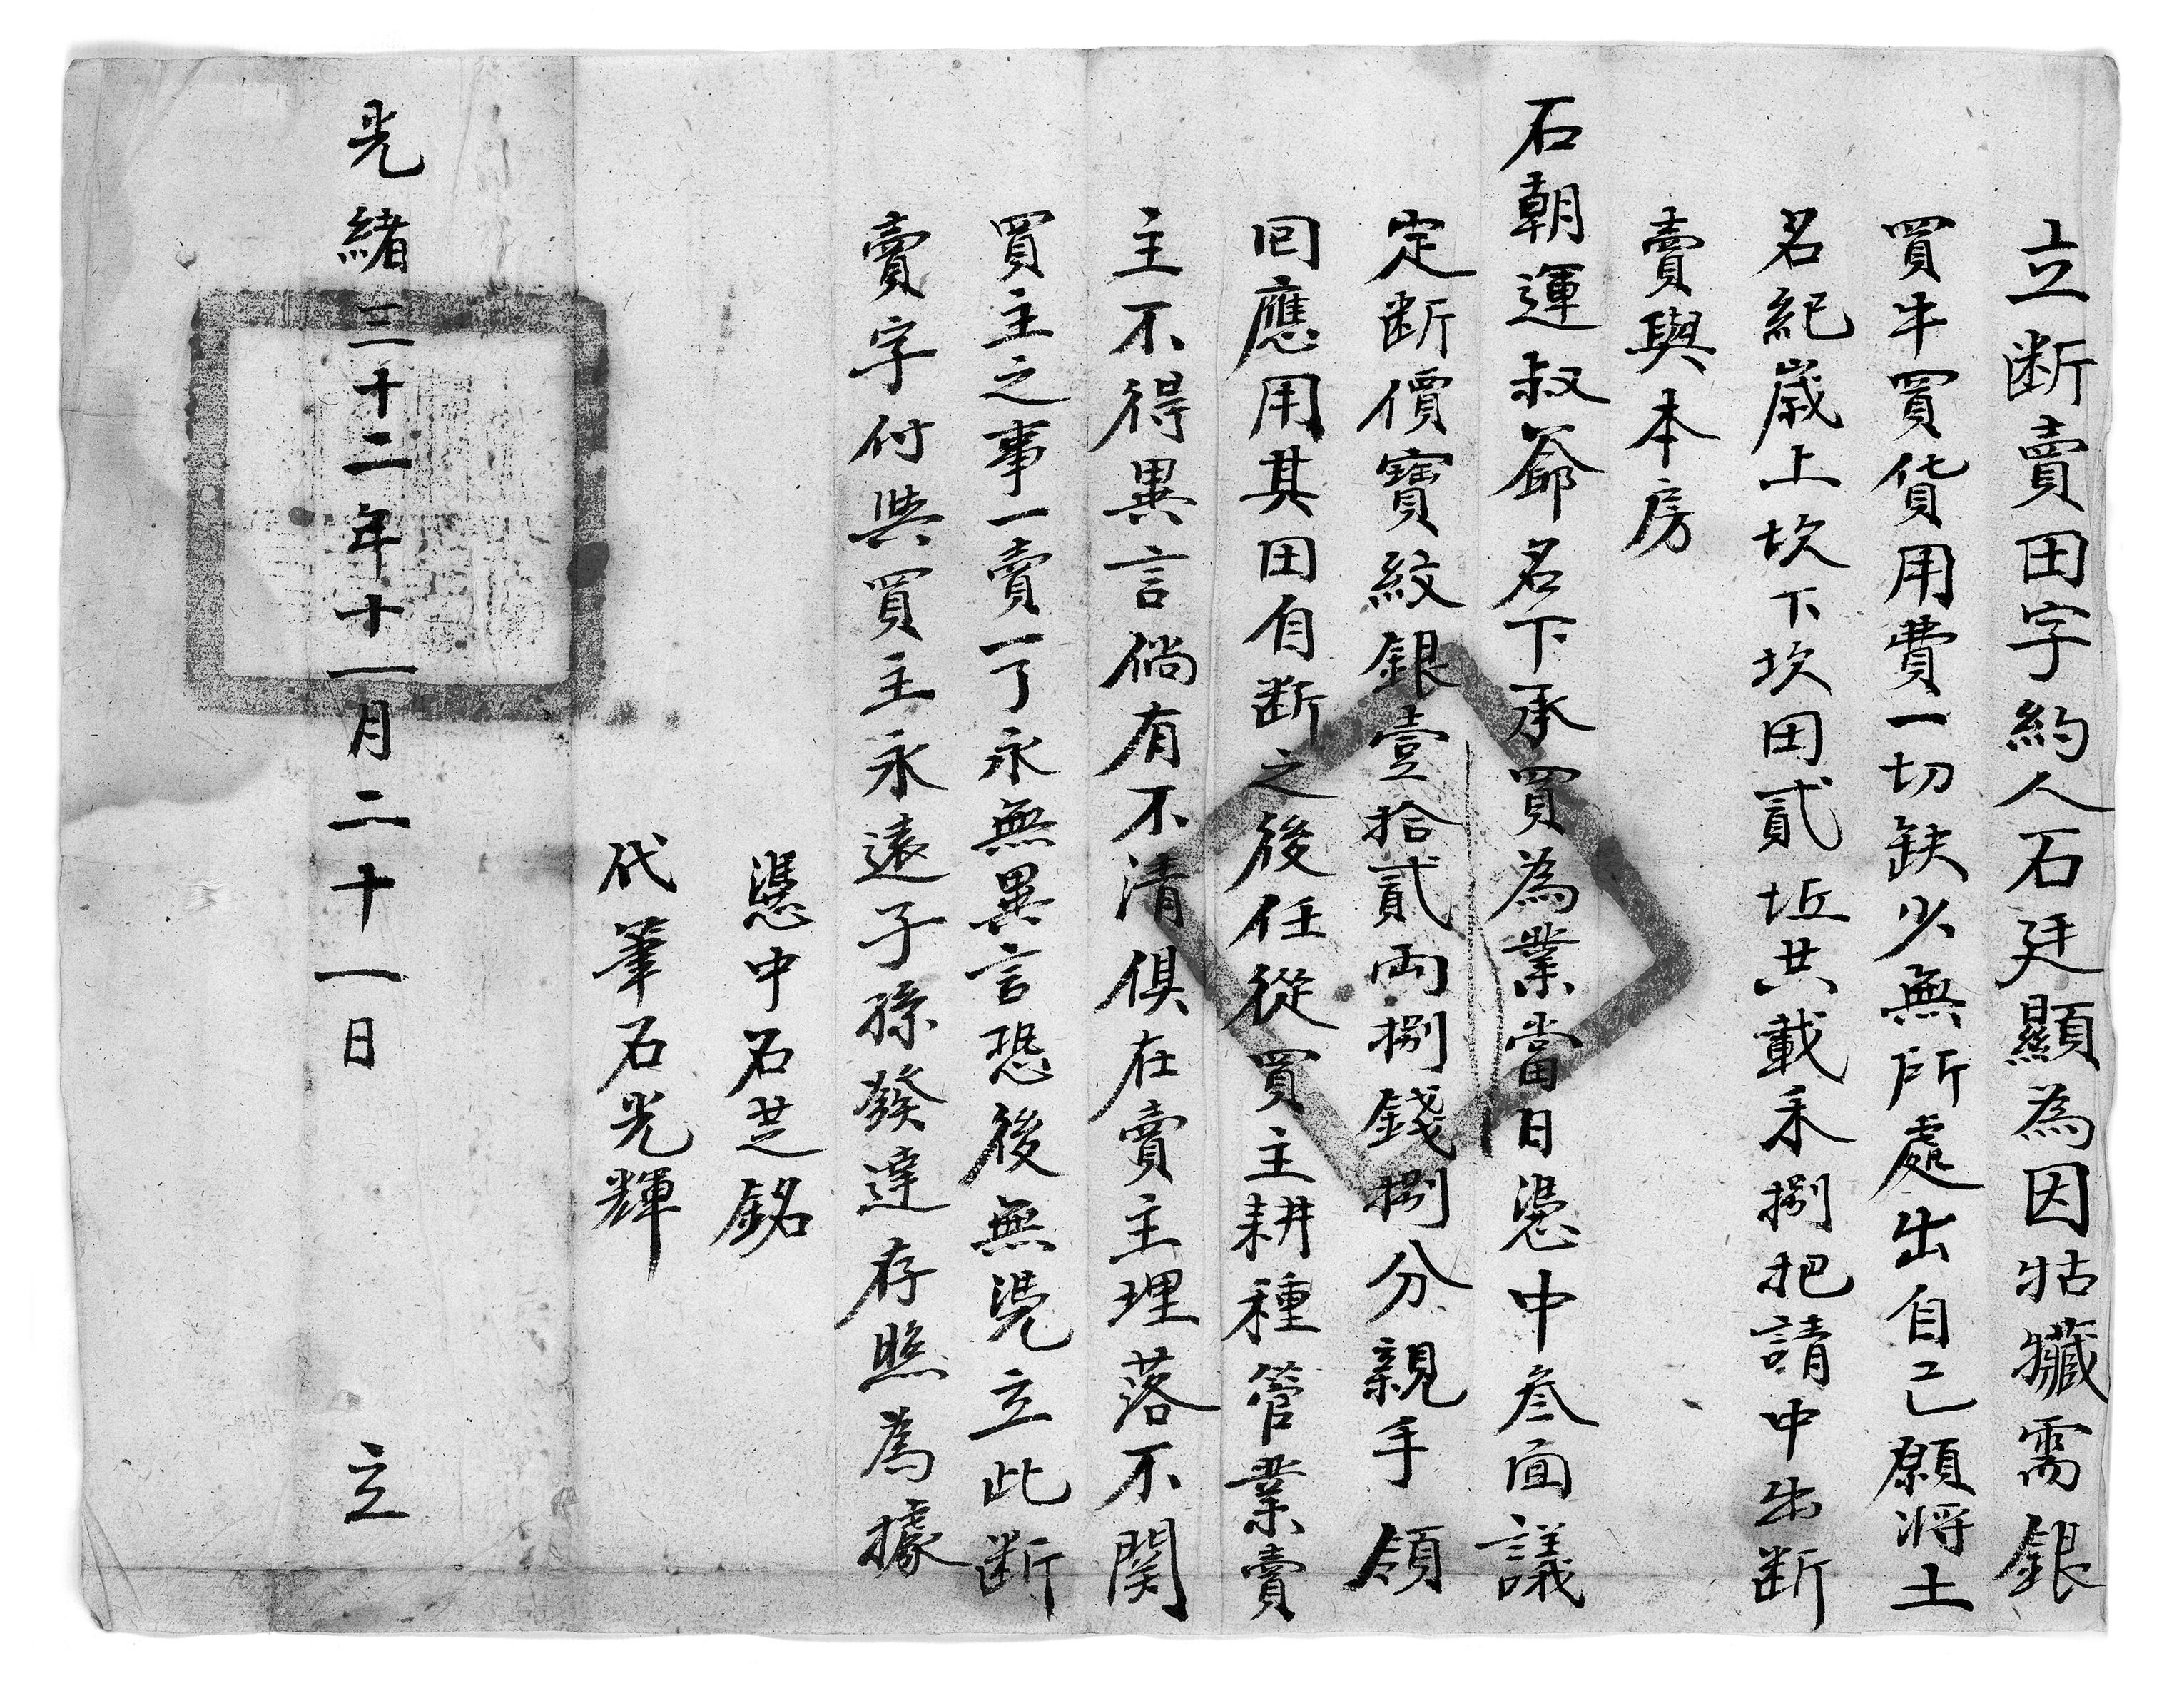 立断賣田字約人石廷顯為因牯臟需銀
買牛買貨用費一切缺少無所處出自己願將土
名紀嵗上坎下坎田貳坵共載禾捌把請中出断
賣與本房
石朝運叔爺名下承買為業當日憑中叁面議
定断價寶紋銀壹拾貳両捌錢捌分親手領
回應用其田自断之後任從買主耕種管業賣
主不得異言倘有不清俱在賣主理落不関
買主之事一賣一了永無異言恐後無憑立此断
賣字付與買主永遠子孫發達存照為據
憑中石芝銘
代筆石光輝
光緒三十二年十一月二十一日 立